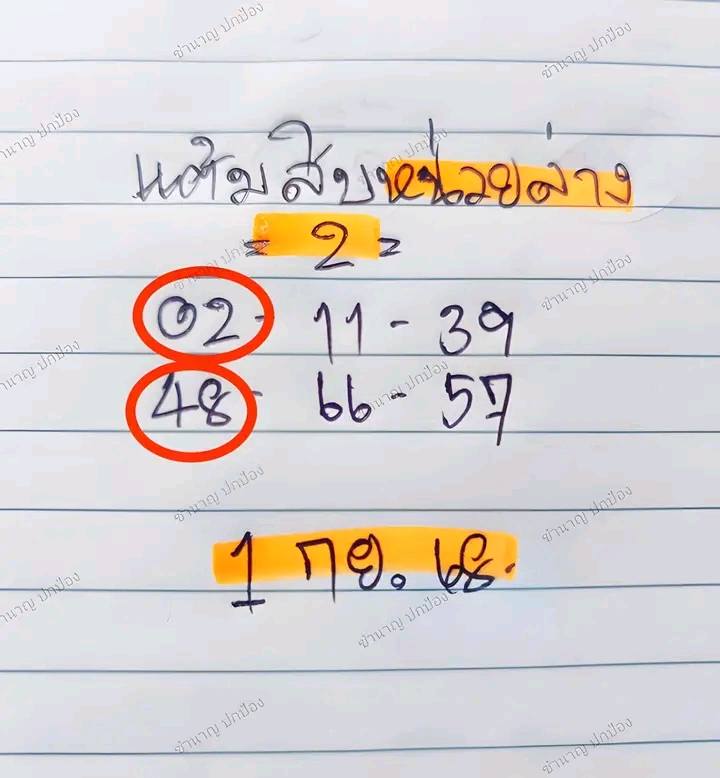 แต้มสิบหน่วยล่าง
= 2 =
02 - 11 - 39
48 - 66 - 57
1 กย. 68.
ชำนาญ ปกป้อง